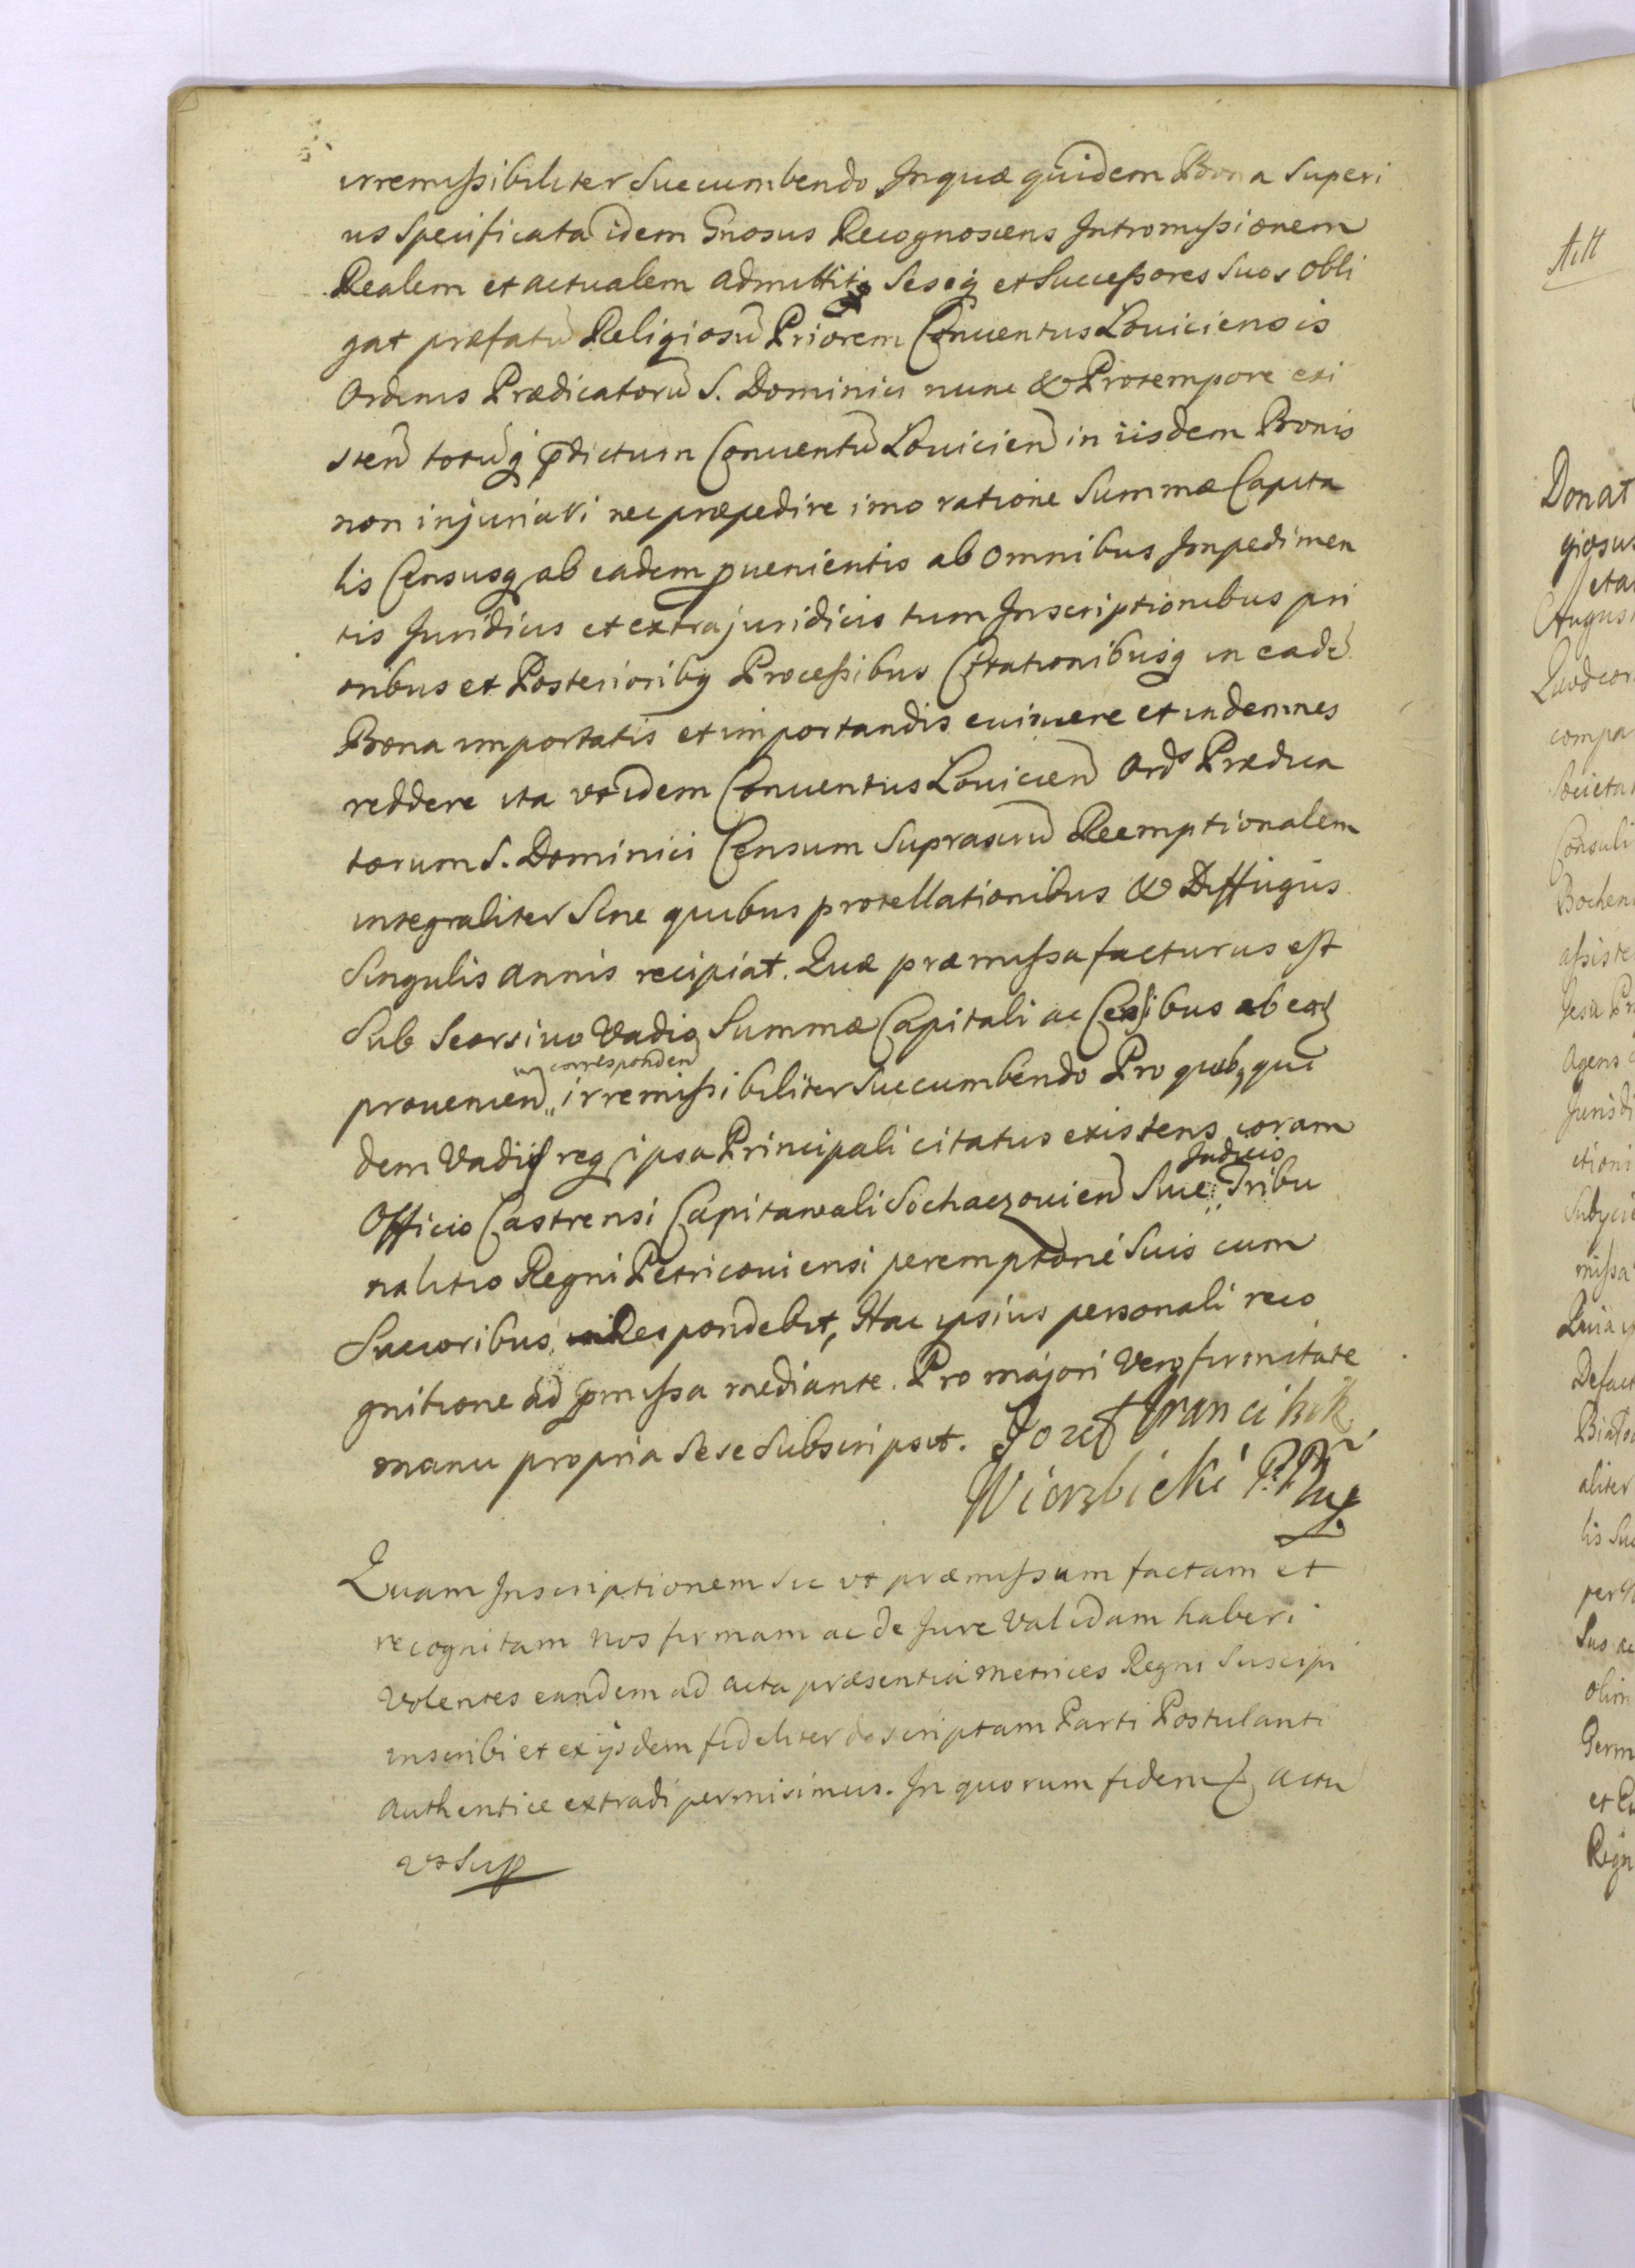 irremissibiliter Succumbendo In quæ quidem Bona Superi
us Specificata idem Gnosus Recognoscens Intromissionem
Realem et actualem admittit Seseq et Successores Suos obli
gat præfatū Religiosū Priorem Conuentus Louiciensis
Ordinis Prædicatorū S. Dominici nunc & Protempore exi
sten̄ totūq p̄dictum Conuentū Louicien̄ in iisdem Bonis
non injuriari nec præpedire imo ratione Summæ Capita
lis Censusq ab eadem prouenientis ab omnibus Impedimen
tis Juridicis et extrajuridicis tum Inscriptionibus pri
oribus et Posterioribq Processibus Citationibusq in eadē
Bona importatis et importandis euincere et indemnes
reddere ita vt idem Conuentus Louicien̄ Ords Prædica
torum S. Dominici Censum Suprascrū Reemptionalem
integraliter Sine quibus protellationibus & Diffugiis
Singulis annis recipiat. Quæ præmissa facturus est
Sub Seorsiuo Vadio Summæ Capitali ac Censibus ab ead
corresponden̄
prouenien̄ irremissibiliter Succumbendo Pro quibq qui
dem Vadiis req ipsa Principali citatus existens coram
Judicio
Officio Castrensi Capitaneali Sochaczouien̄ Siue Tribu
nalitio Regni Petricouiensi peremptorie Suis cum
Succoribus Respondebit, Hac ipsius personali reco
gnitione ad p̄missa mediante. Pro majori Vero firmitate
manu propria Sese Subscripsit. Jozef Francisek
Wierzbicki
Quam Inscriptionem Sic vt præmissum factam et
recognitam nos firmam ac de Jure Validam haberi
Volentes eandem ad acta præsentia metrices Regni Suscipi
inscribi et ex ijsdem fideliter descriptam Parti Postulanti
authentice extradi permisimus. In quorum fidem actu
vt Sup